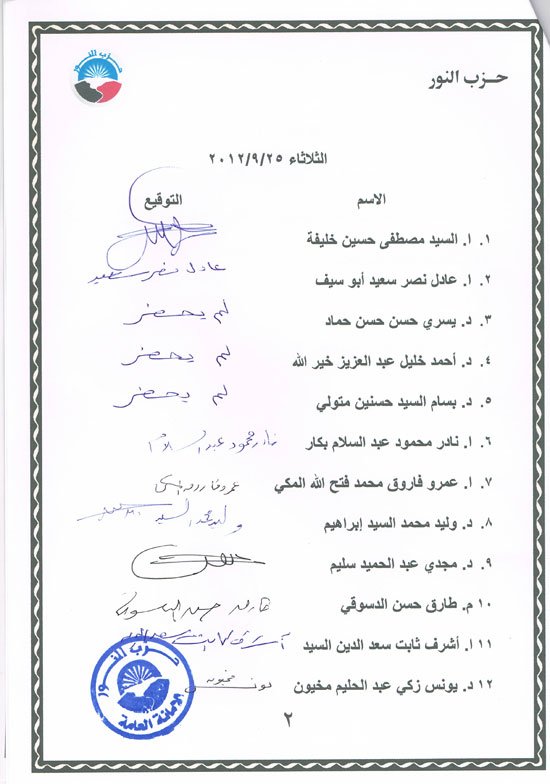 حزب النور
حزب النور
الثلاثاء ٢٠١٢/٩/٢٥
الاسم التوقيع
١. ا. السيد مصطفى حسين خليفة
٢. ا. عادل نصر سعيد أبو سيف عادل نصر سعيد
٣. د. يسري حسن حسن حماد لم يحضر
٤. د. أحمد خليل عبد العزيز خير الله لم يحضر
٥. د. بسام السيد حسنين متولي لم يحضر
٦. ا. نادر محمود عبد السلام بكار نادر محمود عبد السلام
٧. ا. عمرو فاروق محمد فتح الله المكي عمرو فاروق المكي
٨. د. وليد محمد السيد إبراهيم وليد محمد السيد
٩. د. مجدي عبد الحميد سليم
١٠ م. طارق حسن الدسوقي طارق حسن الدسوقي
١١ ا. أشرف ثابت سعد الدين السيد أشرف ثابت سعد الدين
١٢ د. يونس زكي عبد الحليم مخيون يونس مخيون
حزب النور
الامانة العامة
٢